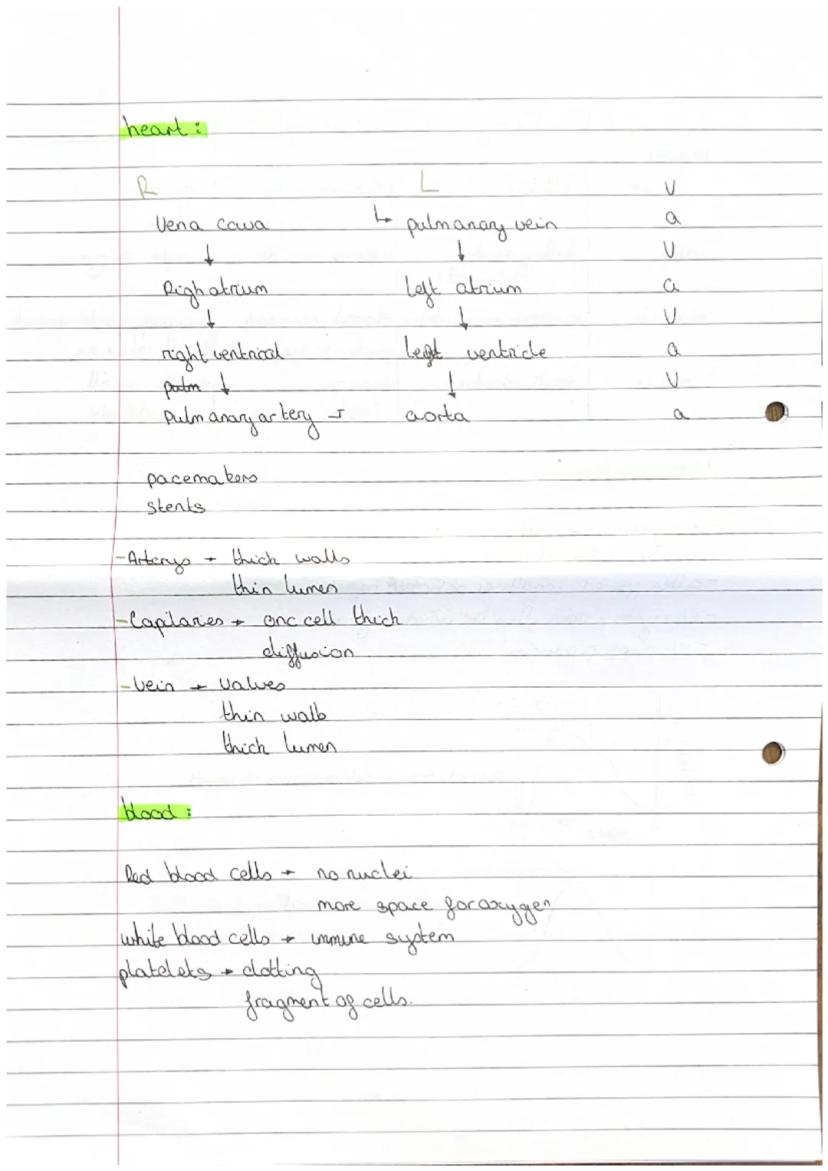 heart:
R L V
Vena cava ↳ pulmanary vein a
↓ ↓ V
Righ atrium left atrium a
↓ ↓ V
right ventrical left ventricle a
↓ ↓ V
Pulmanary artery aorta a
pacemakers
stents
-Arterys → thick walls
thin lumen
-Capilaries → one cell thick
diffusion
-Vein → valves
thin walls
thick lumen
blood:
Red blood cells → no nuclei
more space for oxygen
white blood cells → immune system
platelets → clotting
fragment of cells.